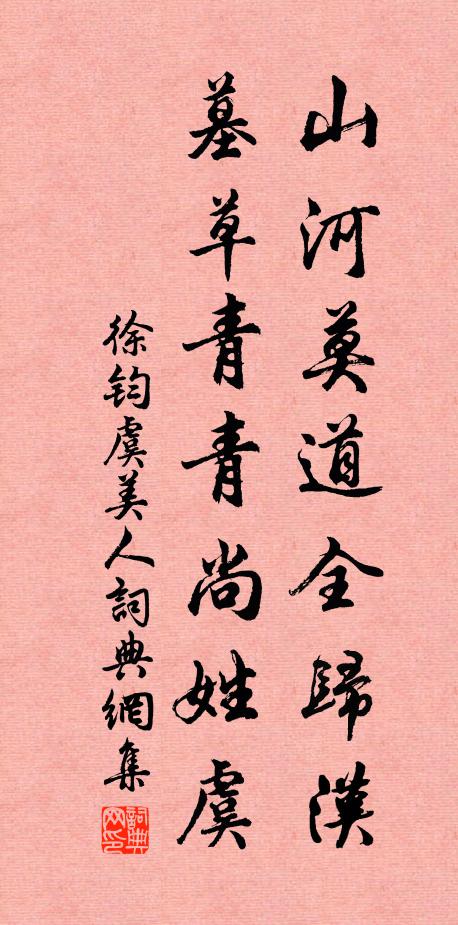 山河莫道全歸漢
墓草青青尚姓虞
徐鈞虞美人詞典網集
詞典网印